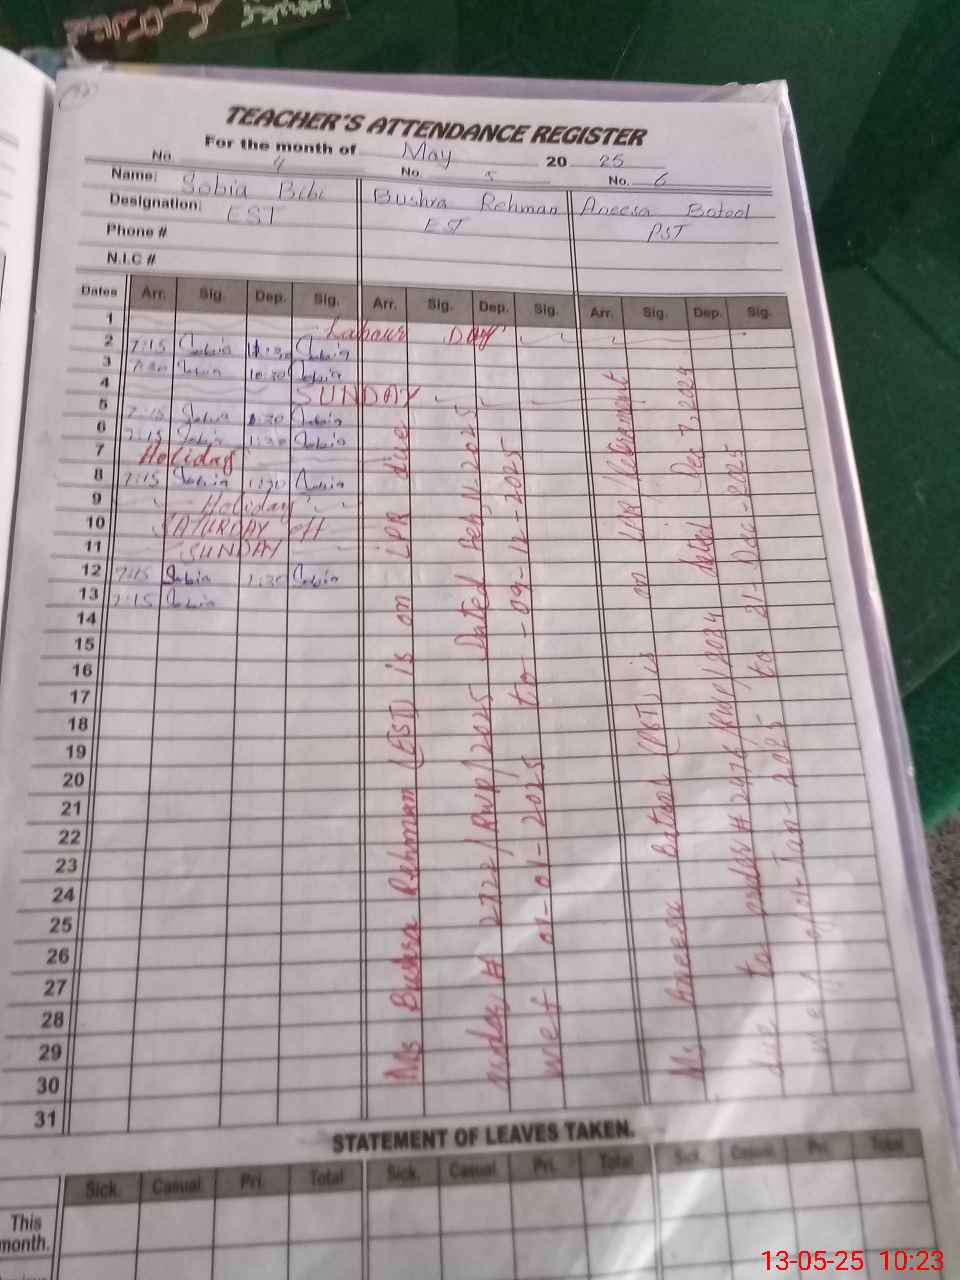 TEACHER'S ATTENDANCE REGISTER
For the month of May 20 25
No 4 No. 5 No. 6
Name: Sobia Bibi Bushra Rehman Aneesa Batool
Designation: EST EST PST
Phone #
N.I.C #
Dates Arr. Sig. Dep. Sig. Arr. Sig. Dep. Sig. Arr. Sig. Dep. Sig.
1 Labour Day
2 7:15 Sobia Sobia
3 7:30 Sobia 10:30 Sobia
4 SUNDAY
5 7:15 Sobia 1:30 Sobia
6 7:15 Sobia 1:30 Sobia
7 Holiday
8 7:15 Sobia 1:30 Sobia
9 Holiday
10 SATURDAY off
11 SUNDAY
12 7:15 Sobia 1:30 Sobia
13 7:15 Sobia
14
15
16
17
18
19
20
21
22
23
24
25
26
27
28
29
30
31
Ms Bushra Rehman (EST) is on LPR due
under # 2722/RWP/2025 Dated 2025
wef 01-01-2025 to -09-12-2025
Ms Aneesa Batool (PST) is on LPR/Retirement
due to order # /RWP/2024 dated Dec 7, 2024
wef of 01-Jan-2025 to 31-Dec-2025
STATEMENT OF LEAVES TAKEN.
Sick. Casual. Pri. Total Sick. Casual. Pri. Total Sick. Casual. Pri. Total
This
month.
13-05-25 10:23